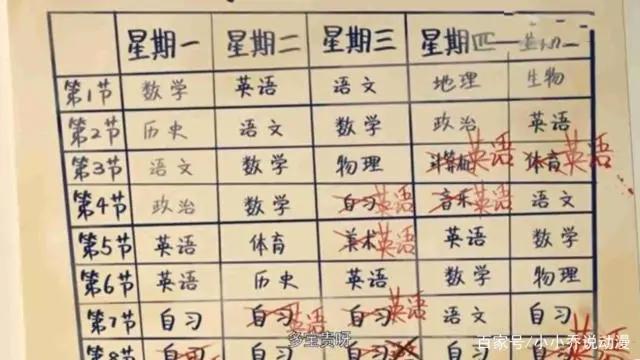 星期一 星期二 星期三 星期四
第1节 数学 英语 语文 地理 生物
第2节 历史 语文 数学 政治 英语
第3节 语文 数学 物理 计算机 英语 体育 英语
第4节 政治 数学 自习 英语 音乐 英语 语文
第5节 英语 体育 美术 英语 英语 数学
第6节 英语 历史 英语 数学 物理
第7节 自习 自习 英语 自习 英语 语文 自习
多宝贵呀
第8节 自习 自习 自习 自习
百家号/小小乔说动漫